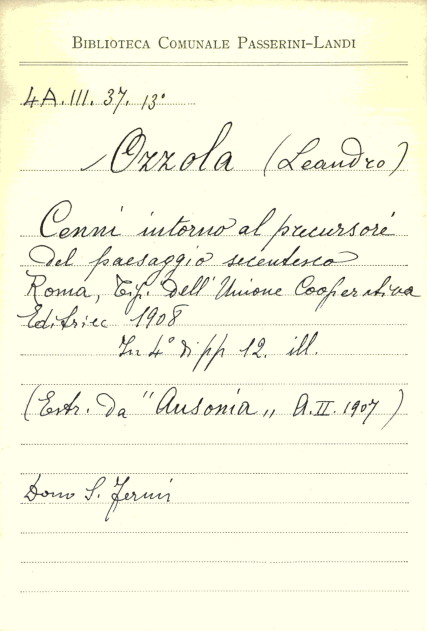 BIBLIOTECA COMUNALE PASSERINI-LANDI
4A.III.37.13°
Ozzola (Leandro)
Cenni intorno al precursore
del paesaggio secentesco
Roma, Tip. dell'Unione Cooperativa
Editrice 1908
In 4° di pp 12. ill.
(Estr. da "Ausonia„ A.II.1907)
Dono S. Fermi